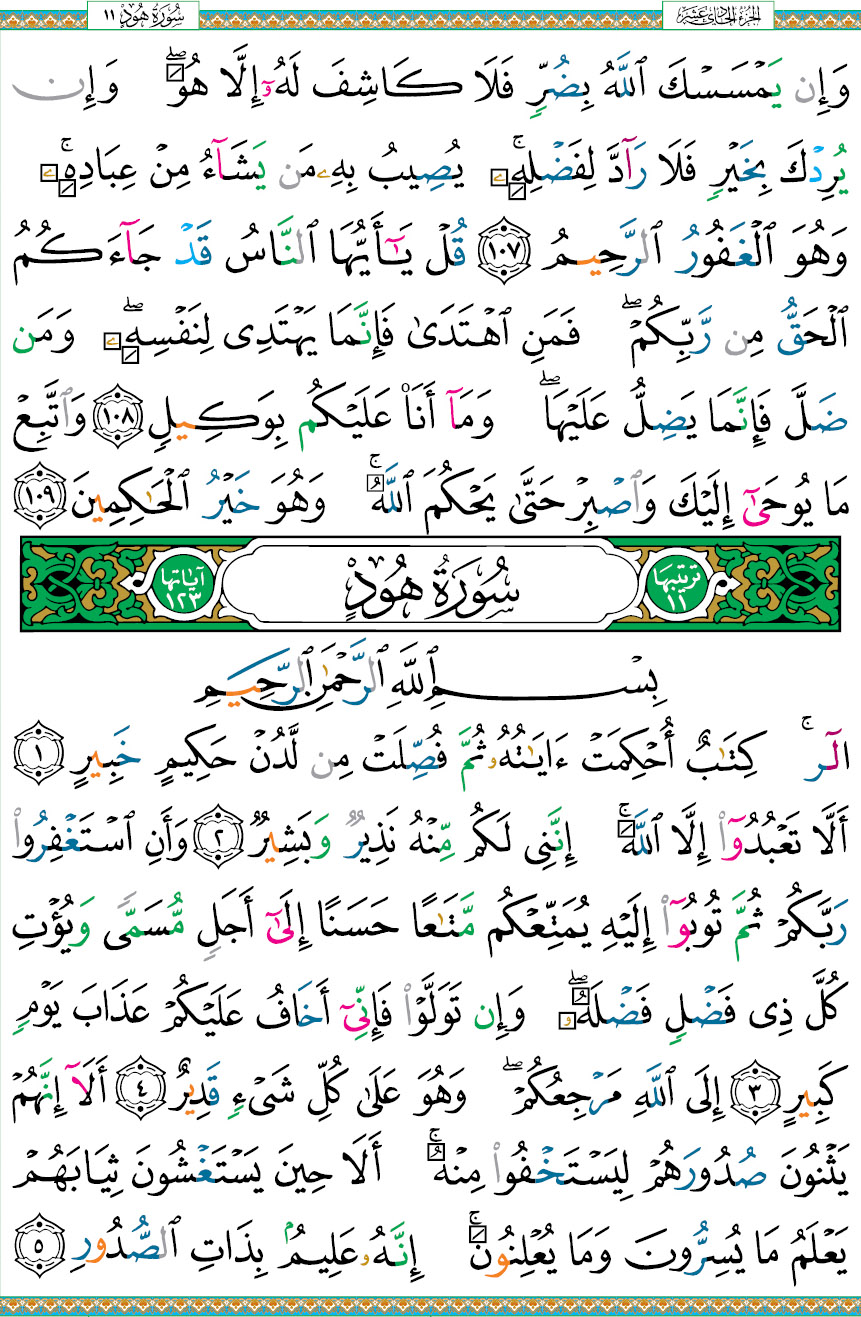 الجزء الحادي عشر
سُورَةُ هُودٍ ١١
وَإِن يَمْسَسْكَ ٱللَّهُ بِضُرٍّ فَلَا كَاشِفَ لَهُۥٓ إِلَّا هُوَ ۖ وَإِن
يُرِدْكَ بِخَيْرٍ فَلَا رَآدَّ لِفَضْلِهِۦ ۚ يُصِيبُ بِهِۦ مَن يَشَآءُ مِنْ عِبَادِهِۦ ۚ
وَهُوَ ٱلْغَفُورُ ٱلرَّحِيمُ ١٠٧ قُلْ يَـٰٓأَيُّهَا ٱلنَّاسُ قَدْ جَآءَكُمُ
ٱلْحَقُّ مِن رَّبِّكُمْ ۖ فَمَنِ ٱهْتَدَىٰ فَإِنَّمَا يَهْتَدِى لِنَفْسِهِۦ ۖ وَمَن
ضَلَّ فَإِنَّمَا يَضِلُّ عَلَيْهَا ۖ وَمَآ أَنَا۠ عَلَيْكُم بِوَكِيلٍ ١٠٨ وَٱتَّبِعْ
مَا يُوحَىٰٓ إِلَيْكَ وَٱصْبِرْ حَتَّىٰ يَحْكُمَ ٱللَّهُ ۚ وَهُوَ خَيْرُ ٱلْحَـٰكِمِينَ ١٠٩
ترتيبها ١١ سُورَةُ هُودٍ آياتها ١٢٣
بِسْمِ ٱللَّهِ ٱلرَّحْمَـٰنِ ٱلرَّحِيمِ
الٓر ۚ كِتَـٰبٌ أُحْكِمَتْ ءَايَـٰتُهُۥ ثُمَّ فُصِّلَتْ مِن لَّدُنْ حَكِيمٍ خَبِيرٍ ١
أَلَّا تَعْبُدُوٓا۟ إِلَّا ٱللَّهَ ۚ إِنَّنِى لَكُم مِّنْهُ نَذِيرٌ وَبَشِيرٌ ٢ وَأَنِ ٱسْتَغْفِرُوا۟
رَبَّكُمْ ثُمَّ تُوبُوٓا۟ إِلَيْهِ يُمَتِّعْكُم مَّتَـٰعًا حَسَنًا إِلَىٰٓ أَجَلٍ مُّسَمًّى وَيُؤْتِ
كُلَّ ذِى فَضْلٍ فَضْلَهُۥ ۖ وَإِن تَوَلَّوْا۟ فَإِنِّىٓ أَخَافُ عَلَيْكُمْ عَذَابَ يَوْمٍ
كَبِيرٍ ٣ إِلَى ٱللَّهِ مَرْجِعُكُمْ ۖ وَهُوَ عَلَىٰ كُلِّ شَىْءٍ قَدِيرٌ ٤ أَلَآ إِنَّهُمْ
يَثْنُونَ صُدُورَهُمْ لِيَسْتَخْفُوا۟ مِنْهُ ۚ أَلَا حِينَ يَسْتَغْشُونَ ثِيَابَهُمْ
يَعْلَمُ مَا يُسِرُّونَ وَمَا يُعْلِنُونَ ۚ إِنَّهُۥ عَلِيمٌۢ بِذَاتِ ٱلصُّدُورِ ٥